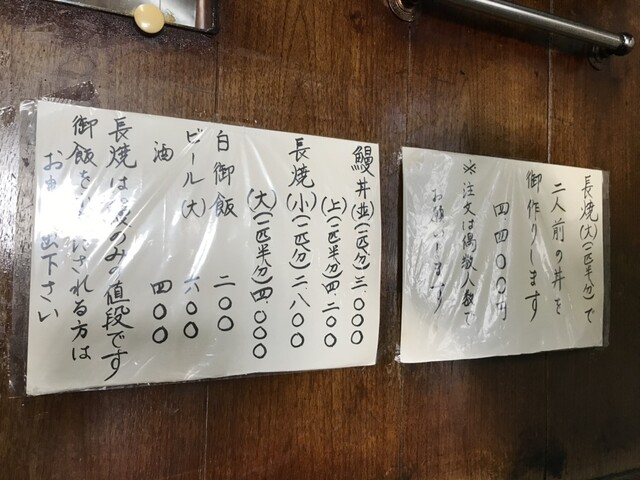 長焼(大)(一匹半分)で
二人前の丼を
御作りします
四四〇〇円
※注文は偶数人数で
お願いします
鰻丼(並)(一匹分)三〇〇〇
(上)(一匹半分)四二〇〇
長焼(小)(一匹分)二八〇〇
(大)(一匹半分)四〇〇〇
白御飯 二〇〇
ビール(大) 六〇〇
酒 四〇〇
長焼は鰻のみの値段です
御飯を される方は
お申し出下さい